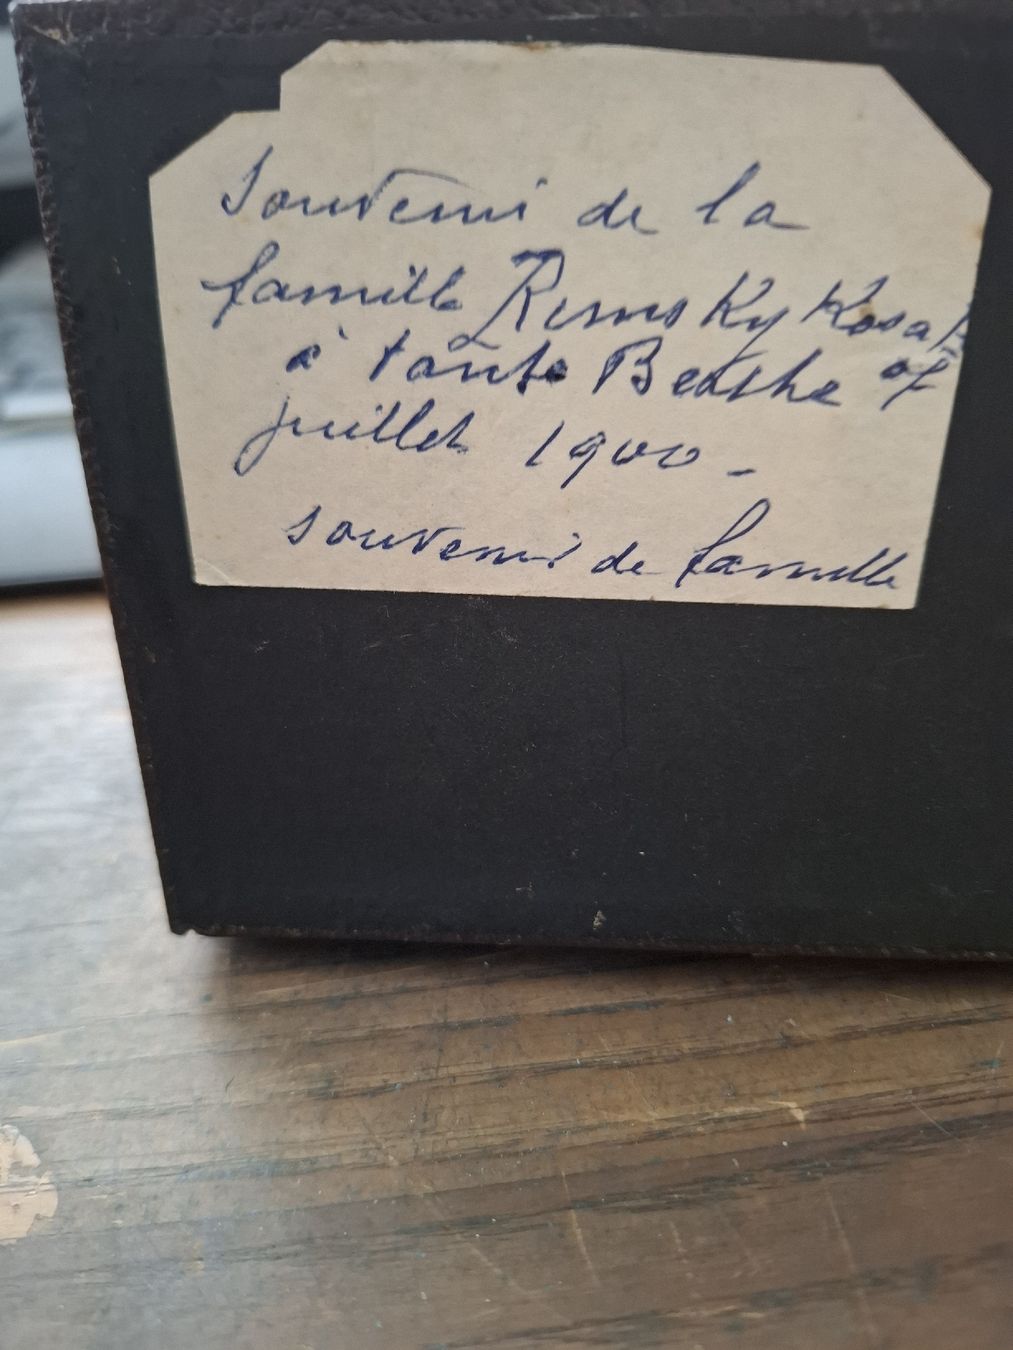 Souvenir de la
famille Rimsky Kosak
à tante Berthe
juillet 1900 -
souvenir de famille